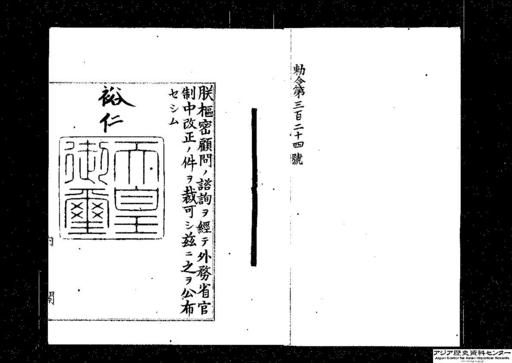 勅令第三百二十四號
朕樞密顧問ノ諮詢ヲ經テ外務省官
制中改正ノ件ヲ裁可シ茲ニ之ヲ公布
セシム
裕仁
天皇
御璽
内閣
アジア歴史資料センター
Japan Center for Asian Historical Records